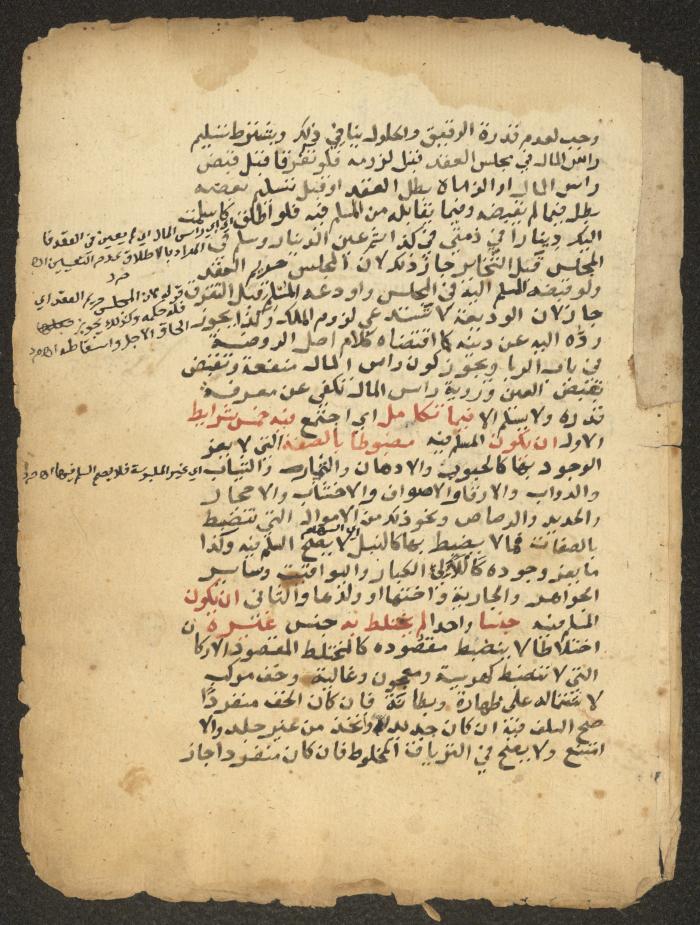 وجب لعدم قدرة الرقيق والحلول ينافي ذلك ويشترط تسليم
راس المال في مجلس العقد قبل لزومه فلو تفرقا قبل قبض
راس المال او الزماه بطل العقد او قبل تسليم بعضه
بطل فيما لم يقبضه وفيما يقابله من المسلم فيه فلو اطلق كاسلمت
اليك دينارا في ذمتي في كذا ثم عين الدينار وسلم في
المجلس قبل التخاير جاز ذلك لان المجلس حريم العقد
ولو قبضه المسلم اليه في المجلس واودعه المسلم قبل التفرق
جاز لان الوديعة لا تستدعي لزوم الملك وكذا يجوز
رده اليه عن دينه كما اقتضاه كلام اصل الروضة
في باب الربا ويجوز كون راس المال منفعة وتقبض
بقبض العين وروية راس المال تكفي عن معرفة
قدره ولا يسلم الا فيما تكامل اي اجتمع فيه خمس شرايط
الاول ان يكون المسلم فيه مضبوطا بالصفة التي لا يعز
الوجود بها كالحبوب والادهان والثمار والثياب
والدواب والارقا والاصواف والاخشاب والاحجار
والحديد والرصاص ونحو ذلك من الاموال التي تنضبط
بالصفات فما لا يضبط بها كالنبل لا يصح السلم فيه وكذا
ما يعز وجوده كاللآلئ الكبار واليواقيت وساير
الجواهر والجارية واختها او ولدها والثاني ان يكون
المسلم فيه جنسا واحدا لم يختلط به جنس غيره
اختلاطا لا ينضبط مقصوده كالمختلط المقصود الاركان
التي لا تنضبط كهريسة ومعجون وغالية وخف مركب
لاشتماله على ظهارة وبطانة فان كان الخف منفردا
صح السلف فيه ان كان جديدا واتخذ من غير جلد والا
امتنع ولا يصح في الترياق المخلوط فان كان منفردا جاز
اي راس المال اي لم يعين في العقد فا
المراد بالاطلاق عدم التعيين
قوله لان المجلس حريم العقد اي
الحاق الاجل واسقاطه
اي غير الملبوسة فلا يصح السلم فيها